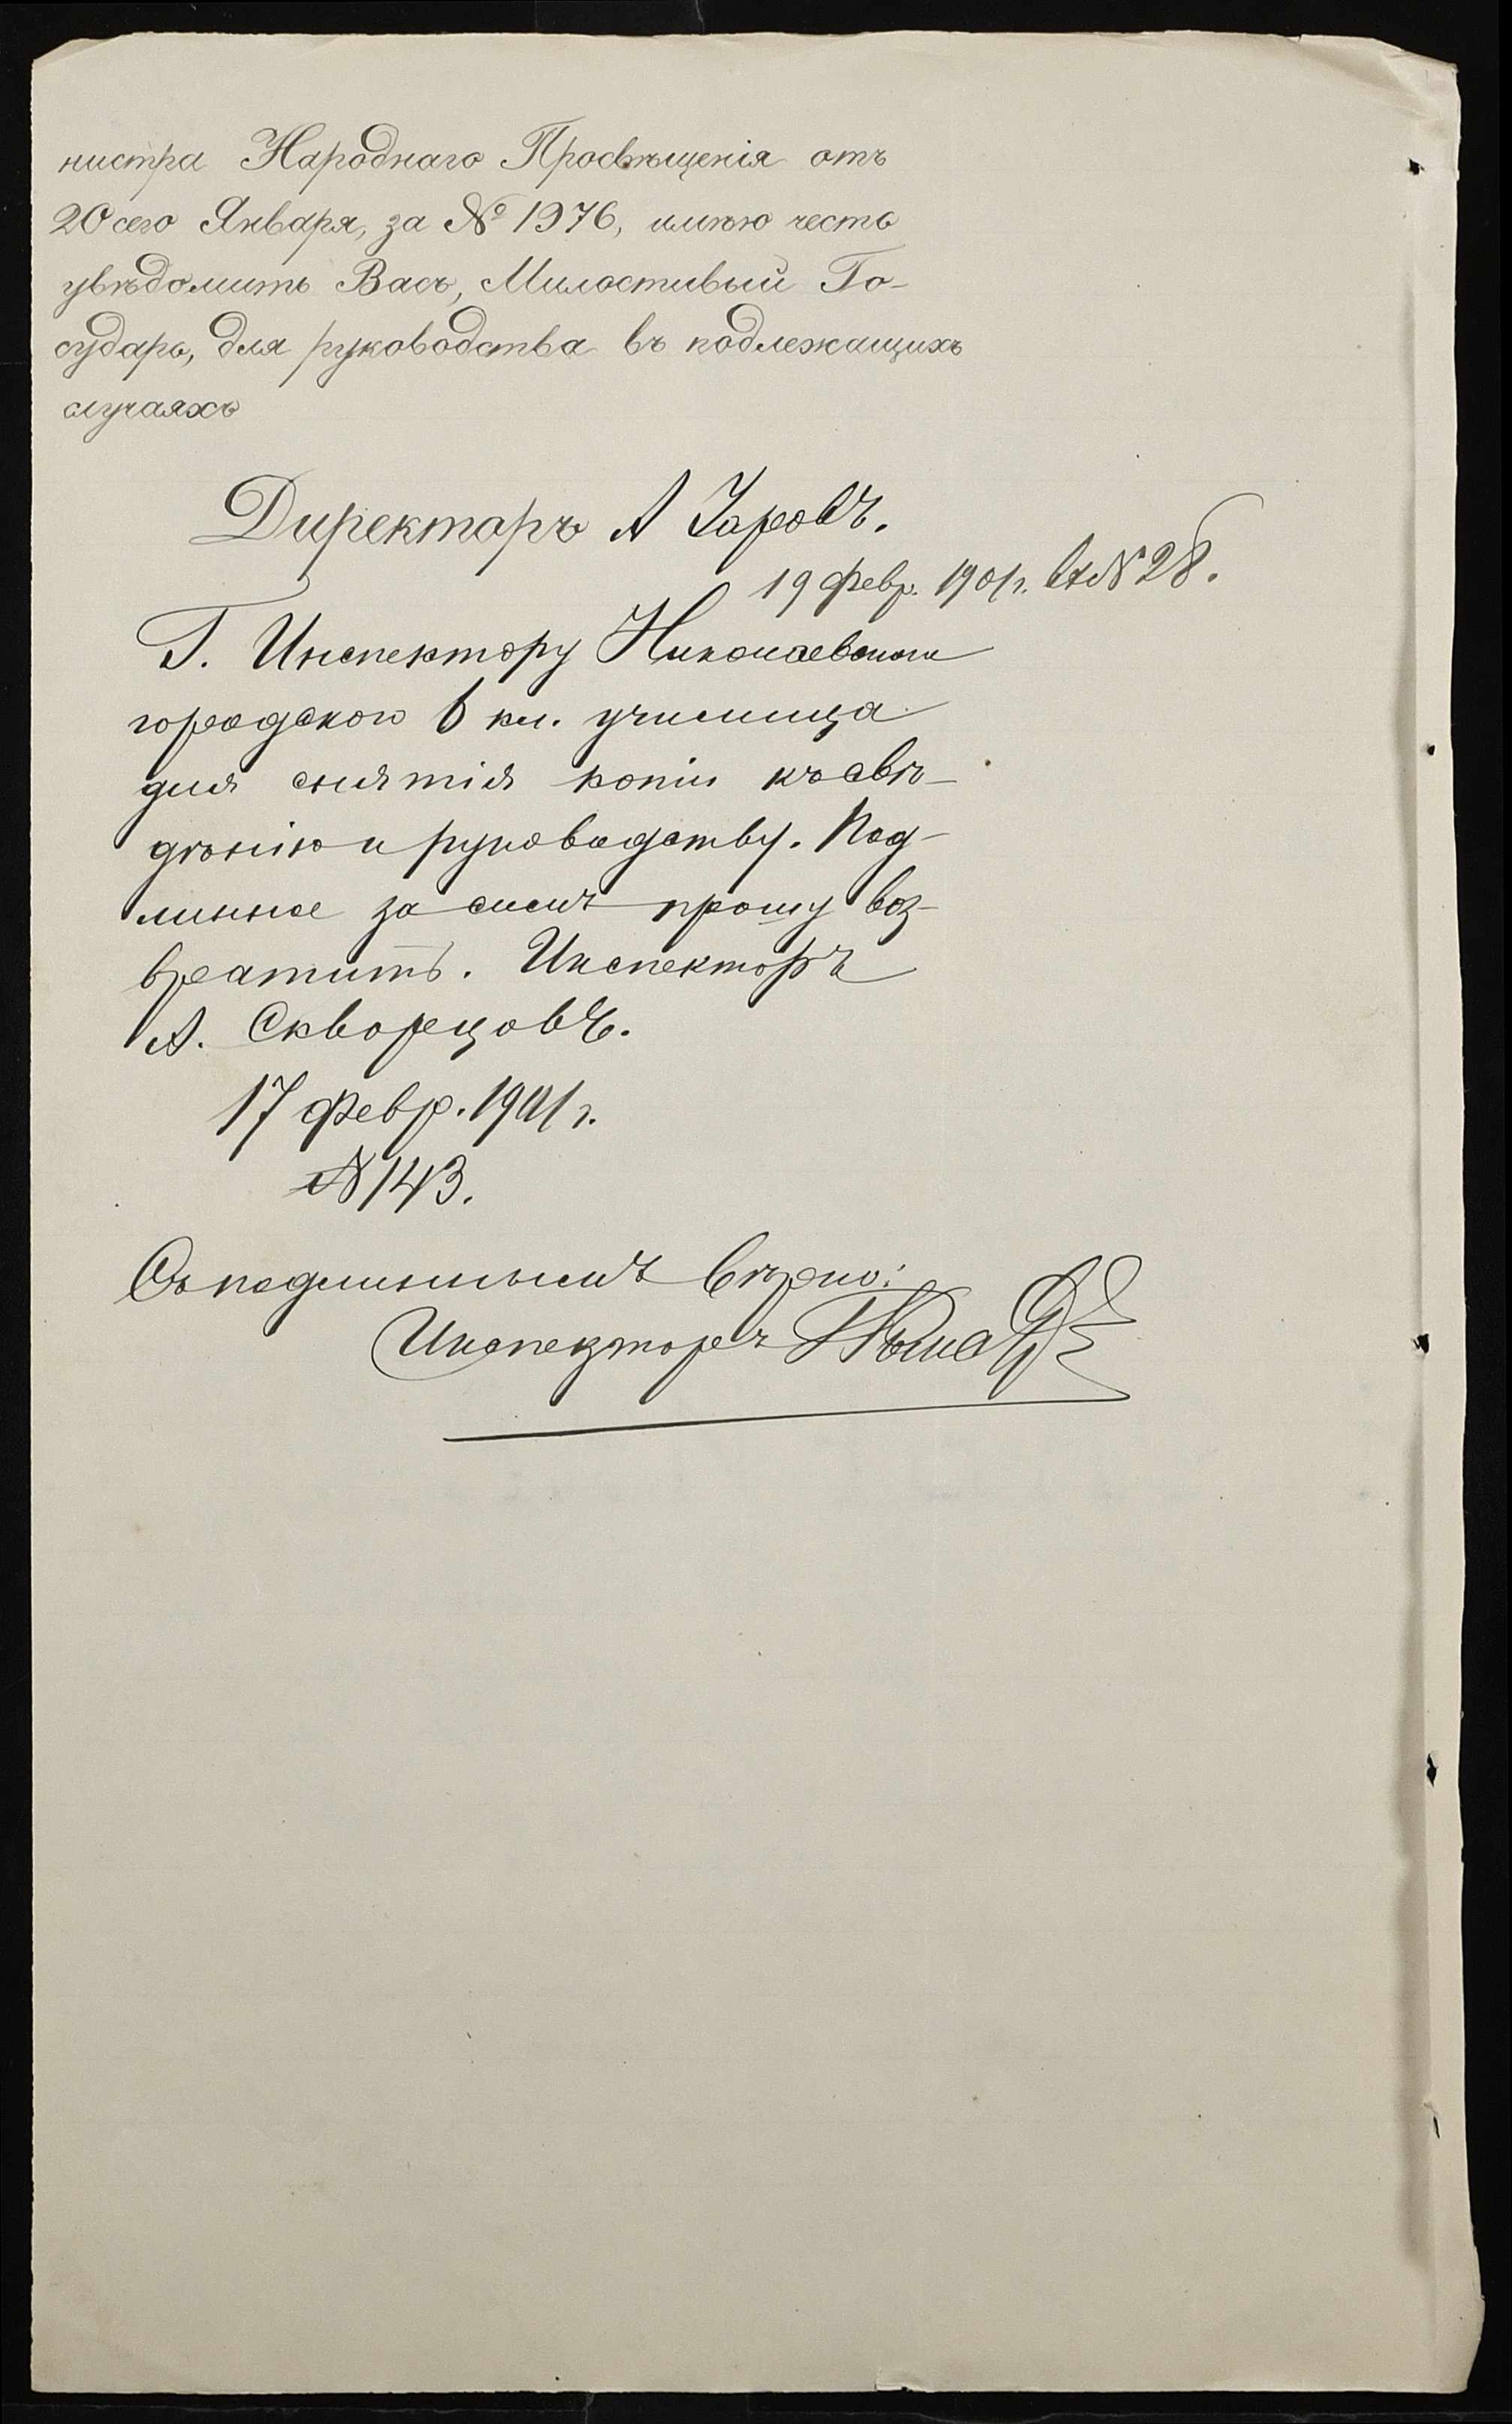 нистра Народнаго Просвѣщенія отъ
20 сего Января, за № 1976, имѣю честь
увѣдомить Васъ, Милостивый Го-
сударь, для руководства въ подлежащихъ
случаяхъ
Директоръ А
19 февр. 1901 г. Вх № 28.
Г. Инспектору Николаевскаго
городского 6 кл. училища
для снятія копіи къ свѣ-
дѣнію и руководству. Под-
линное за симъ прошу воз-
вратить. Инспекторъ
А. Скворецовъ.
17 февр. 1901 г.
№ 143.
Съ подлиннымъ вѣрно:
Инспекторъ